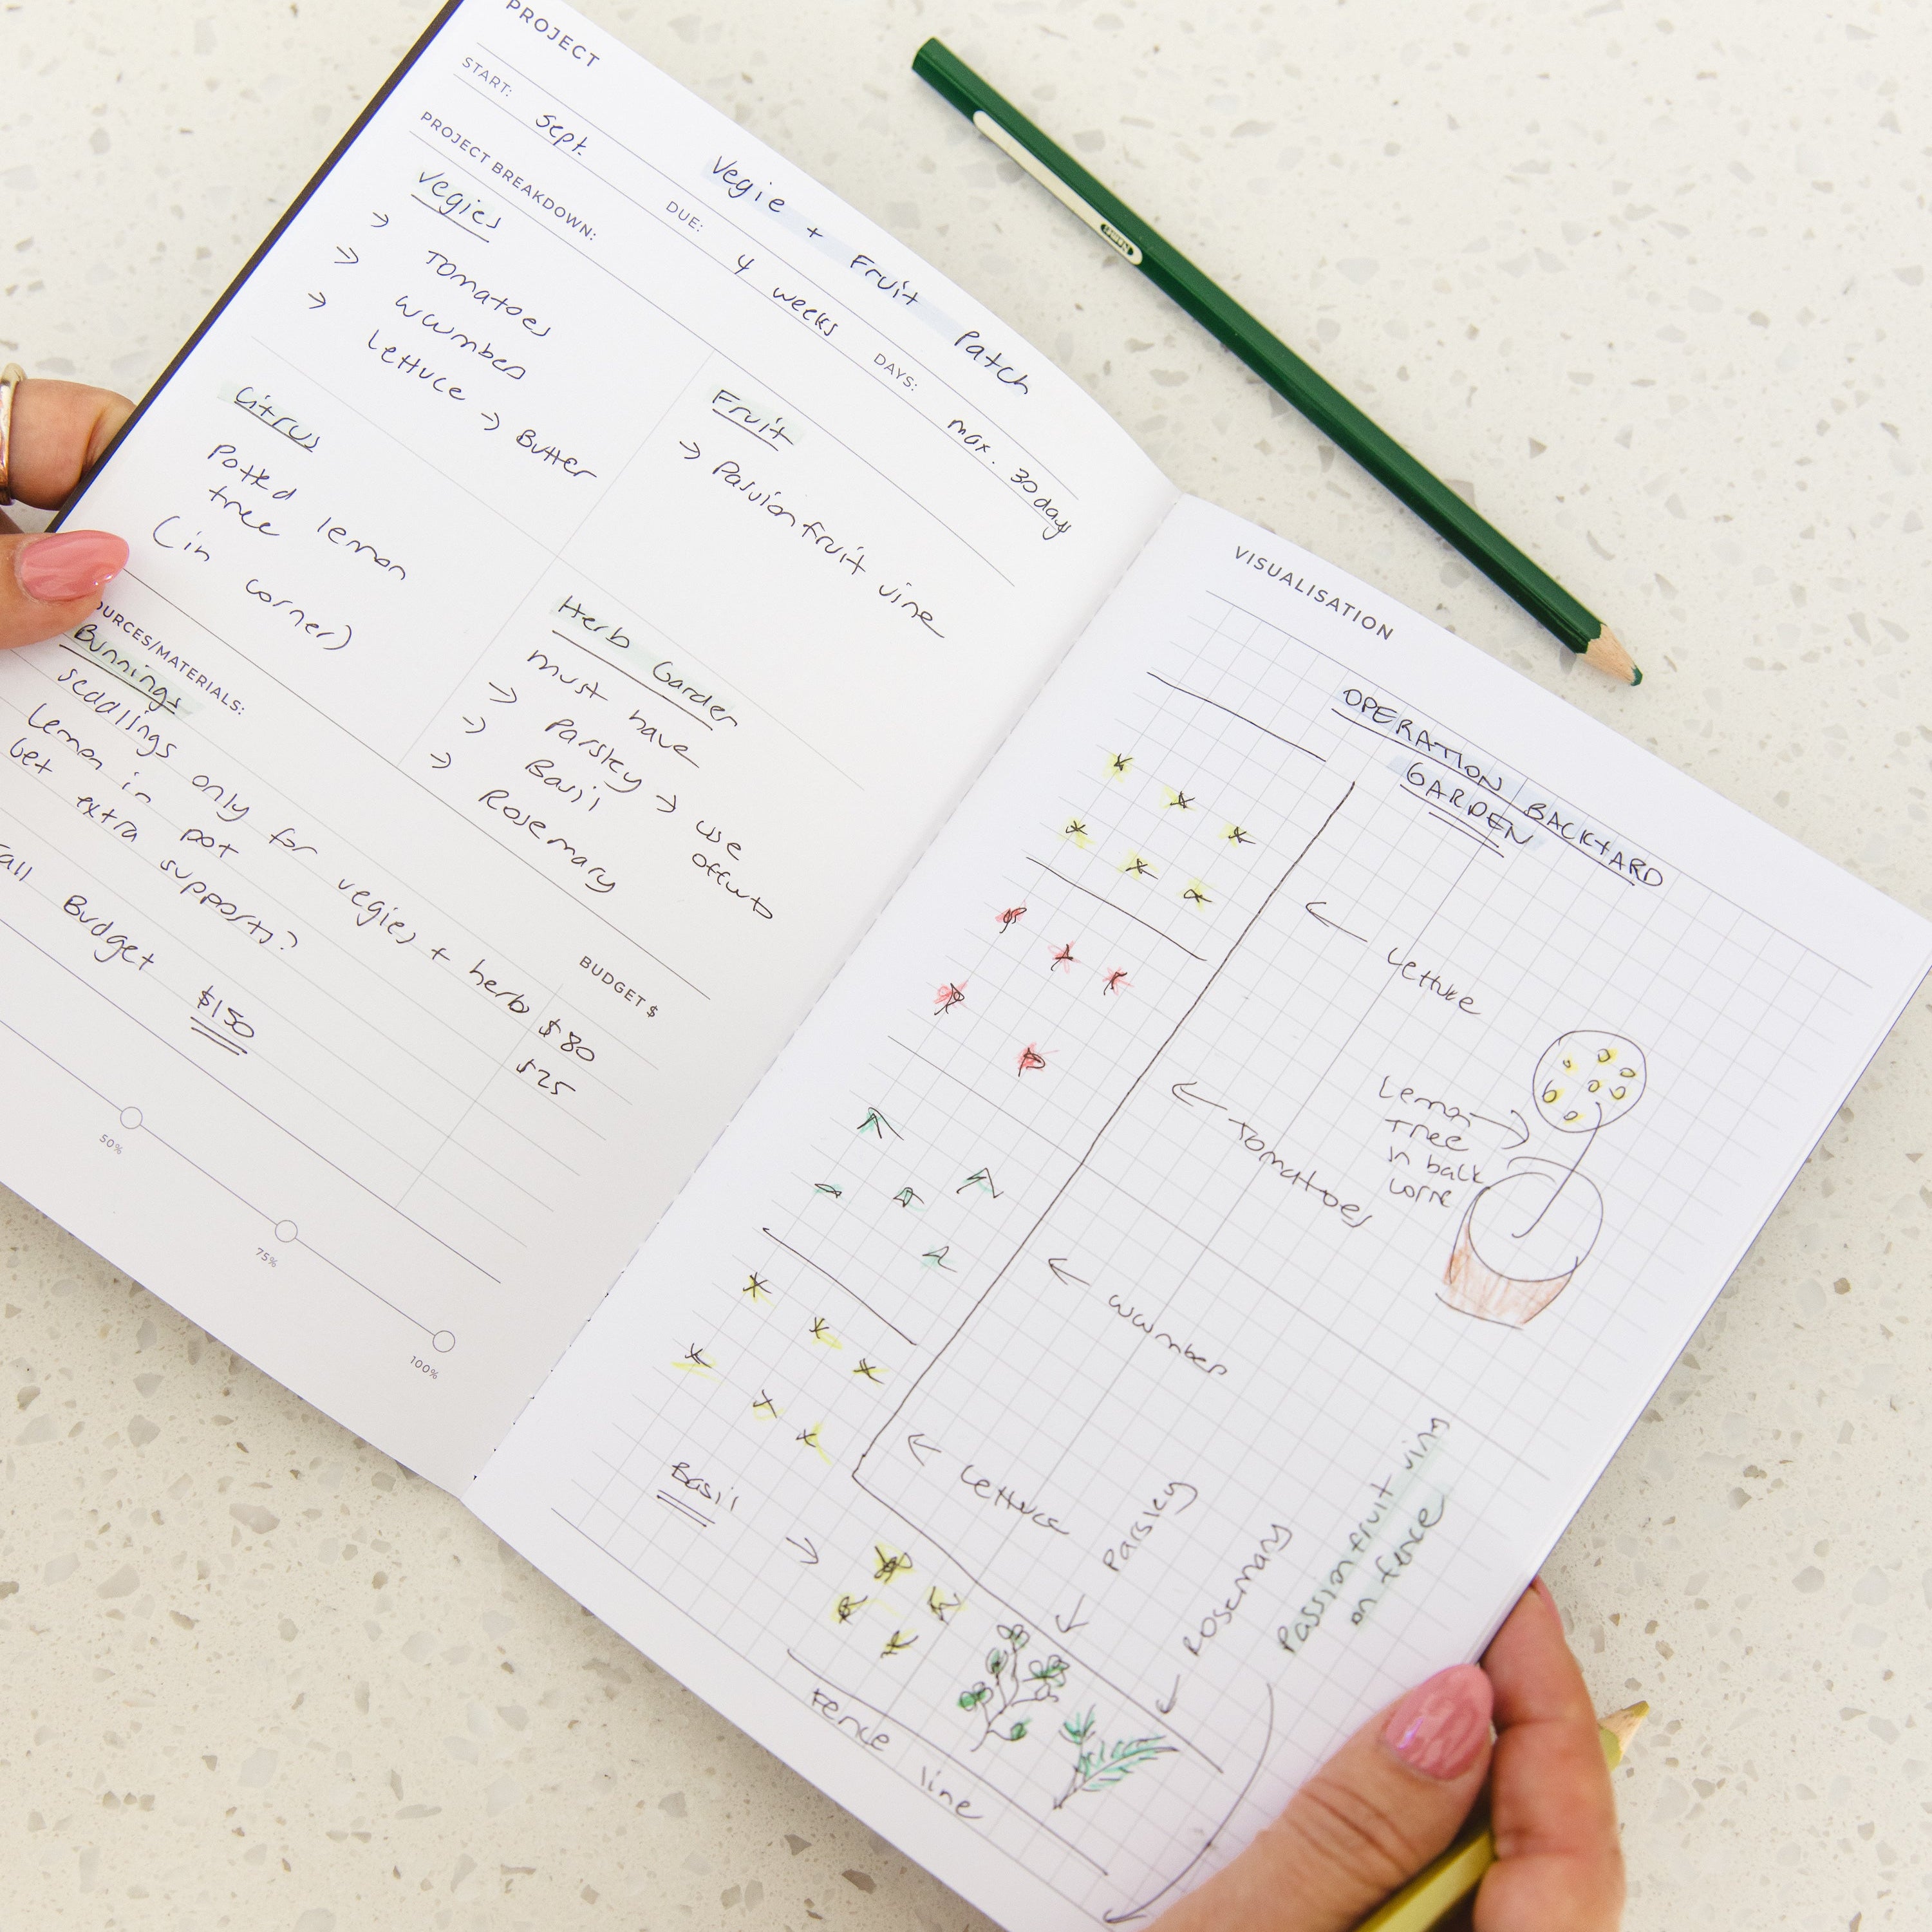 PROJECT
Vegie + Fruit Patch
START: Sept. DUE: 4 weeks DAYS: max. 30 days
PROJECT BREAKDOWN:
Vegies
→ Tomatoes
→ cucumber
→ Lettuce → Butter
Fruit
→ Passionfruit vine
Citrus
Potted lemon
tree
(in corner)
Herb Garden
must have
→ Parsley → use
offcuts
→ Basil
→ Rosemary
OURCES/MATERIALS:
BUDGET $
Bunnings
seedlings only for vegies + herbs $80
Lemon in pot $25
Get extra supports?
all Budget $150
50%
75%
100%
VISUALISATION
OPERATION BACKYARD
GARDEN
← Lettuce
← Tomatoes
Lemon →
Tree
in back
corne
← cucumber
← Lettuce
Basil →
Parsley
Rosemary
Passionfruit vine
on fence
Fence line